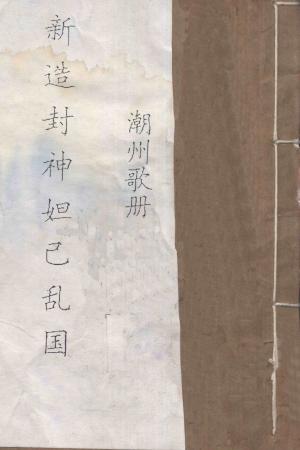 潮州歌册
新造封神妲己乱国